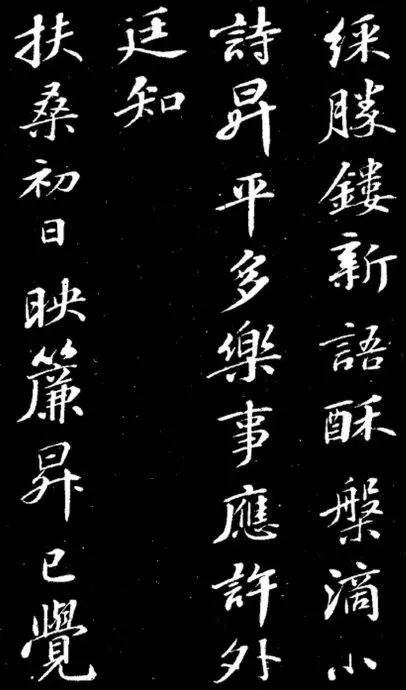 綵勝鏤新語酥盤滴小
詩昇平多樂事應許外
廷知
扶桑初日映簾昇已覺